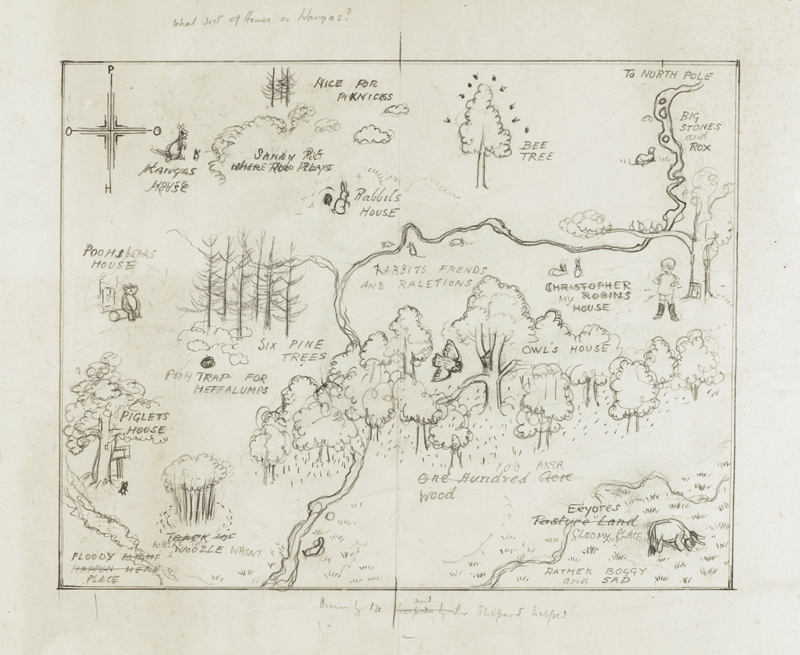 What sort of House is Kangas?
TO NORTH POLE
P
O O
H
NICE FOR
PIKNICKS
BIG
STONES
and
ROX
BEE
TREE
KANGAS
HOUSE
Sandy Pit
WHERE ROO PLAYS
Rabbits
HOUSE
POOH BEARS
HOUSE
RABBITS FRENDS
AND RALETIONS
CHRISTOPHER
MY ROBINS
HOUSE
SIX PINE
TREES
OWL'S HOUSE
POOH TRAP FOR
HEFFALUMPS
PIGLETS
HOUSE
100 AKER
One Hundred Acre
Wood
Eeyores
Pasture Land
GLOOMY PLACE
TRACK OF
WOOZLE WASNT
FLOODY MIGHT
HAPPEN HERE
PLACE
RATHER BOGGY
and SAD
Drawn by me and
Shepard helpd